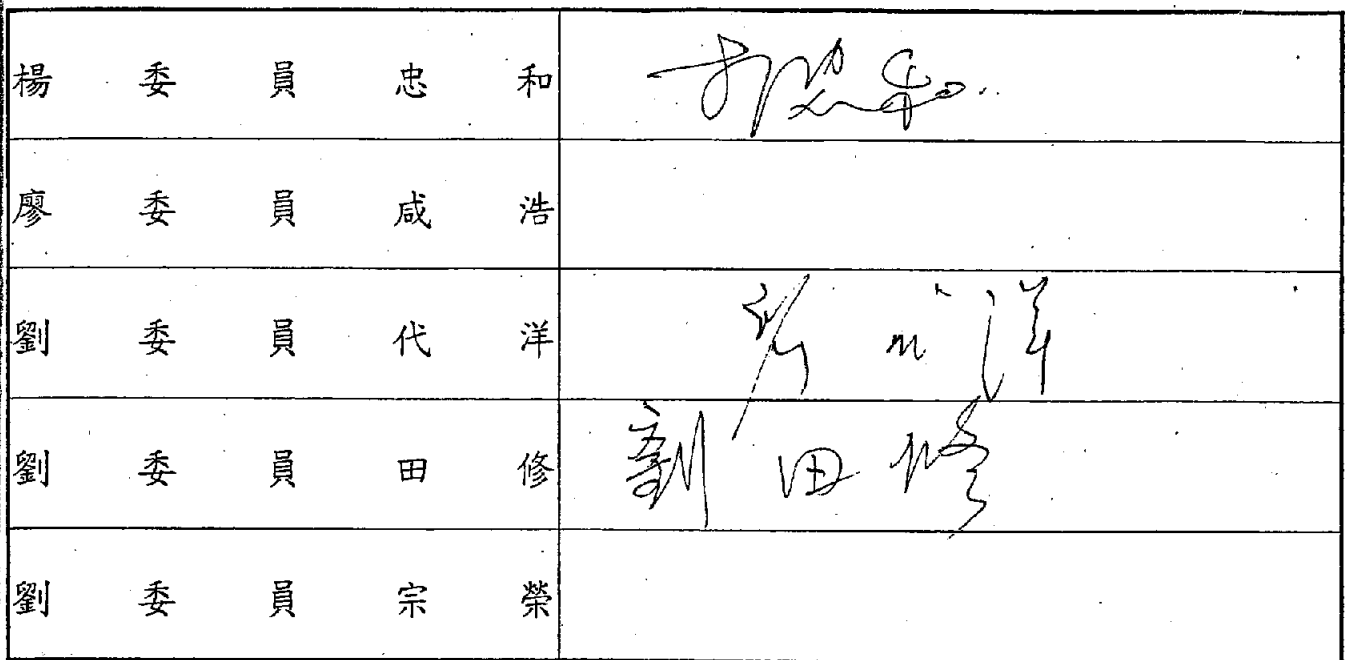 楊委員忠和
廖委員咸浩
劉委員代洋
劉委員田修 劉田修
劉委員宗榮